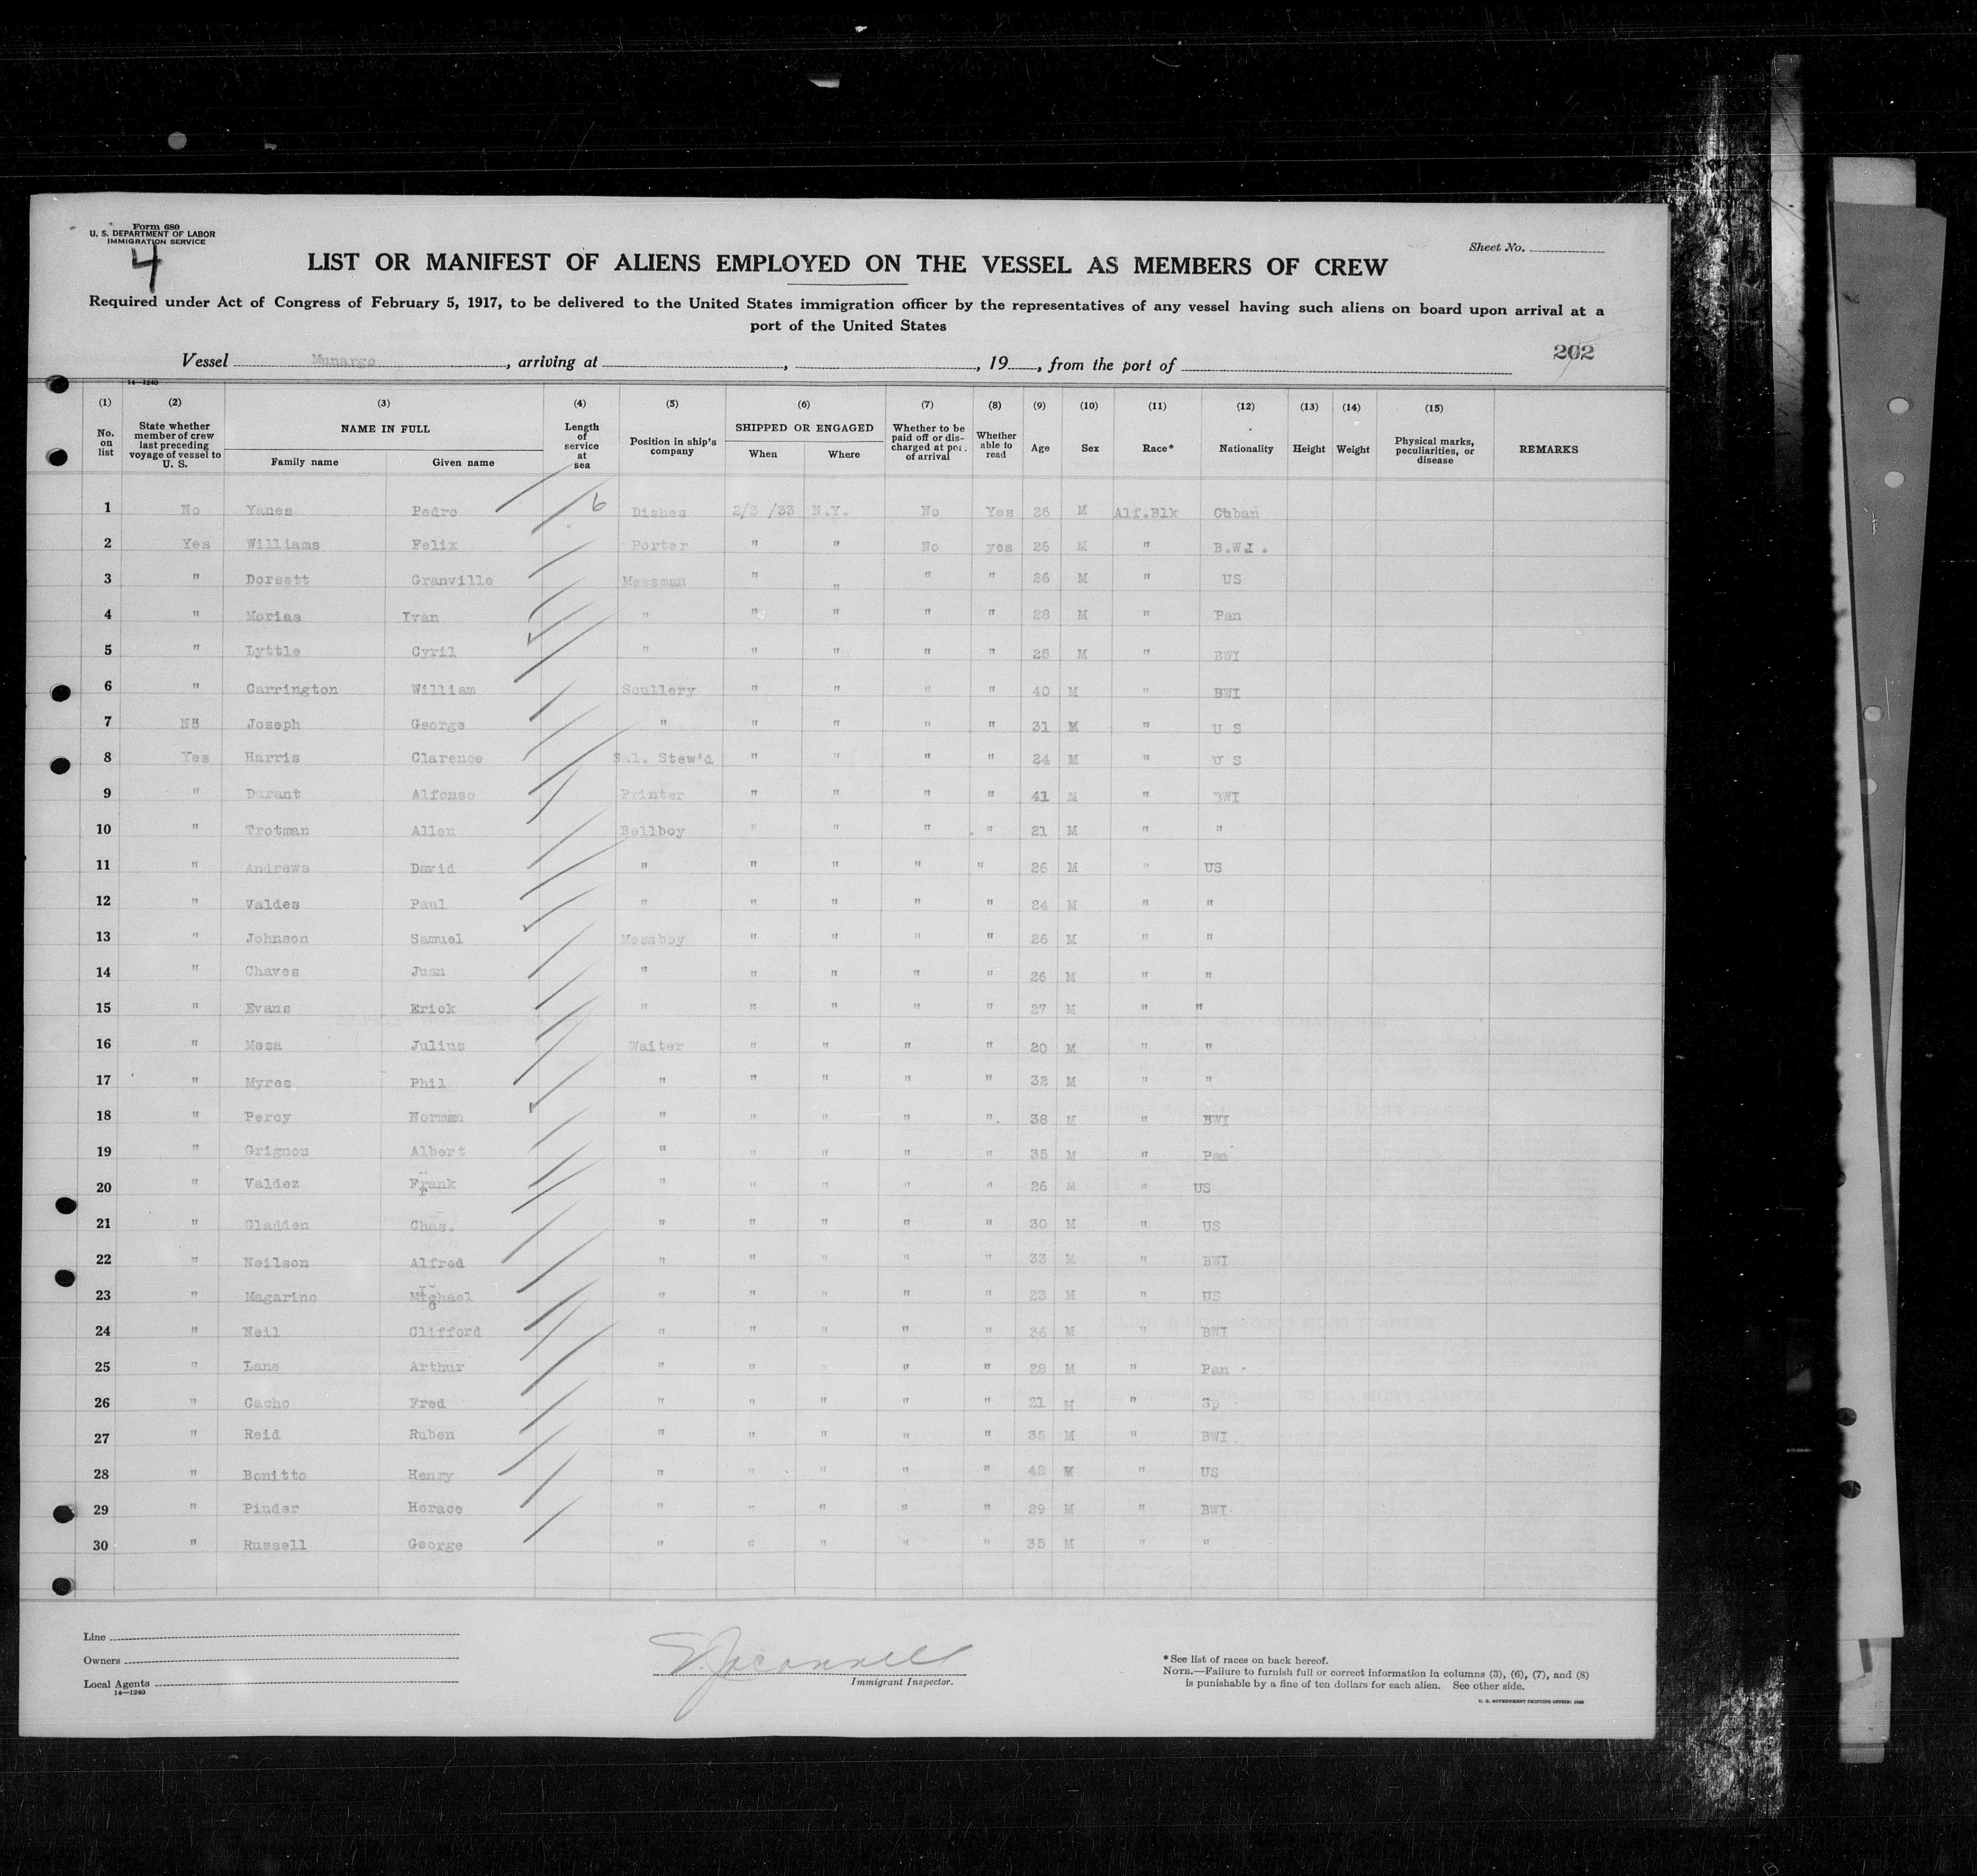 Form 680
U. S. DEPARTMENT OF LABOR
IMMIGRATION SERVICE
4
Sheet No.
LIST OR MANIFEST OF ALIENS EMPLOYED ON THE VESSEL AS MEMBERS OF CREW
Required under Act of Congress of February 5, 1917, to be delivered to the United States immigration officer by the representatives of any vessel having such aliens on board upon arrival at a
port of the United States
Vessel Munargo, arriving at , , 19 , from the port of
202
14—1240
(1) (2) (3) (4) (5) (6) (7) (8) (9) (10) (11) (12) (13) (14) (15)
No. on list State whether member of crew last preceding voyage of vessel to U. S. NAME IN FULL Family name Given name Length of service at sea Position in ship's company SHIPPED OR ENGAGED When Where Whether to be paid off or discharged at port of arrival Whether able to read Age Sex Race* Nationality Height Weight Physical marks, peculiarities, or disease REMARKS
1 No Yanes Pedro 6 Dishes 2/3 /33 N.Y. No Yes 26 M Alf.Blk Cuban
2 Yes Williams Felix Porter " " No yes 26 M " B.W.I.
3 " Dorsett Granville Messman " " " " 26 M " US
4 " Morias Ivan " " " " " 28 M " Pan
5 " Lyttle Cyril " " " " " 25 M " BWI
6 " Carrington William Scullery " " " " 40 M " BWI
7 No Joseph George " " " " " 31 M " U S
8 Yes Harris Clarence Sal. Stew'd " " " " 24 M " U S
9 " Durant Alfonso Printer " " " " 41 M " BWI
10 " Trotman Allen Bellboy " " " " 21 M " "
11 " Andrews David " " " " " 26 M " US
12 " Valdes Paul " " " " " 24 M " "
13 " Johnson Samuel Messboy " " " " 26 M " "
14 " Chaves Juan " " " " " 26 M " "
15 " Evans Erick " " " " " 27 M " "
16 " Mesa Julius Waiter " " " " 20 M " "
17 " Myres Phil " " " " " 32 M " "
18 " Percy Norman " " " " " 38 M " BWI
19 " Grignon Albert " " " " " 35 M " Pan
20 " Valdez Frank " " " " " 26 M " US
21 " Gladden Chas. " " " " " 30 M " US
22 " Neilson Alfred " " " " " 33 M " BWI
23 " Magarino Michael " " " " " 23 M " US
24 " Neil Clifford " " " " " 36 M " BWI
25 " Lane Arthur " " " " " 28 M " Pan
26 " Cacho Fred " " " " " 21 M " Sp
27 " Reid Ruben " " " " " 35 M " BWI
28 " Bonitto Henry " " " " " 42 M " US
29 " Pinder Horace " " " " " 29 M " BWI
30 " Russell George " " " " " 35 M " "
Line
Owners
Local Agents
14—1240
Immigrant Inspector.
*See list of races on back hereof.
NOTE.—Failure to furnish full or correct information in columns (3), (6), (7), and (8)
is punishable by a fine of ten dollars for each alien. See other side.
U. S. GOVERNMENT PRINTING OFFICE: